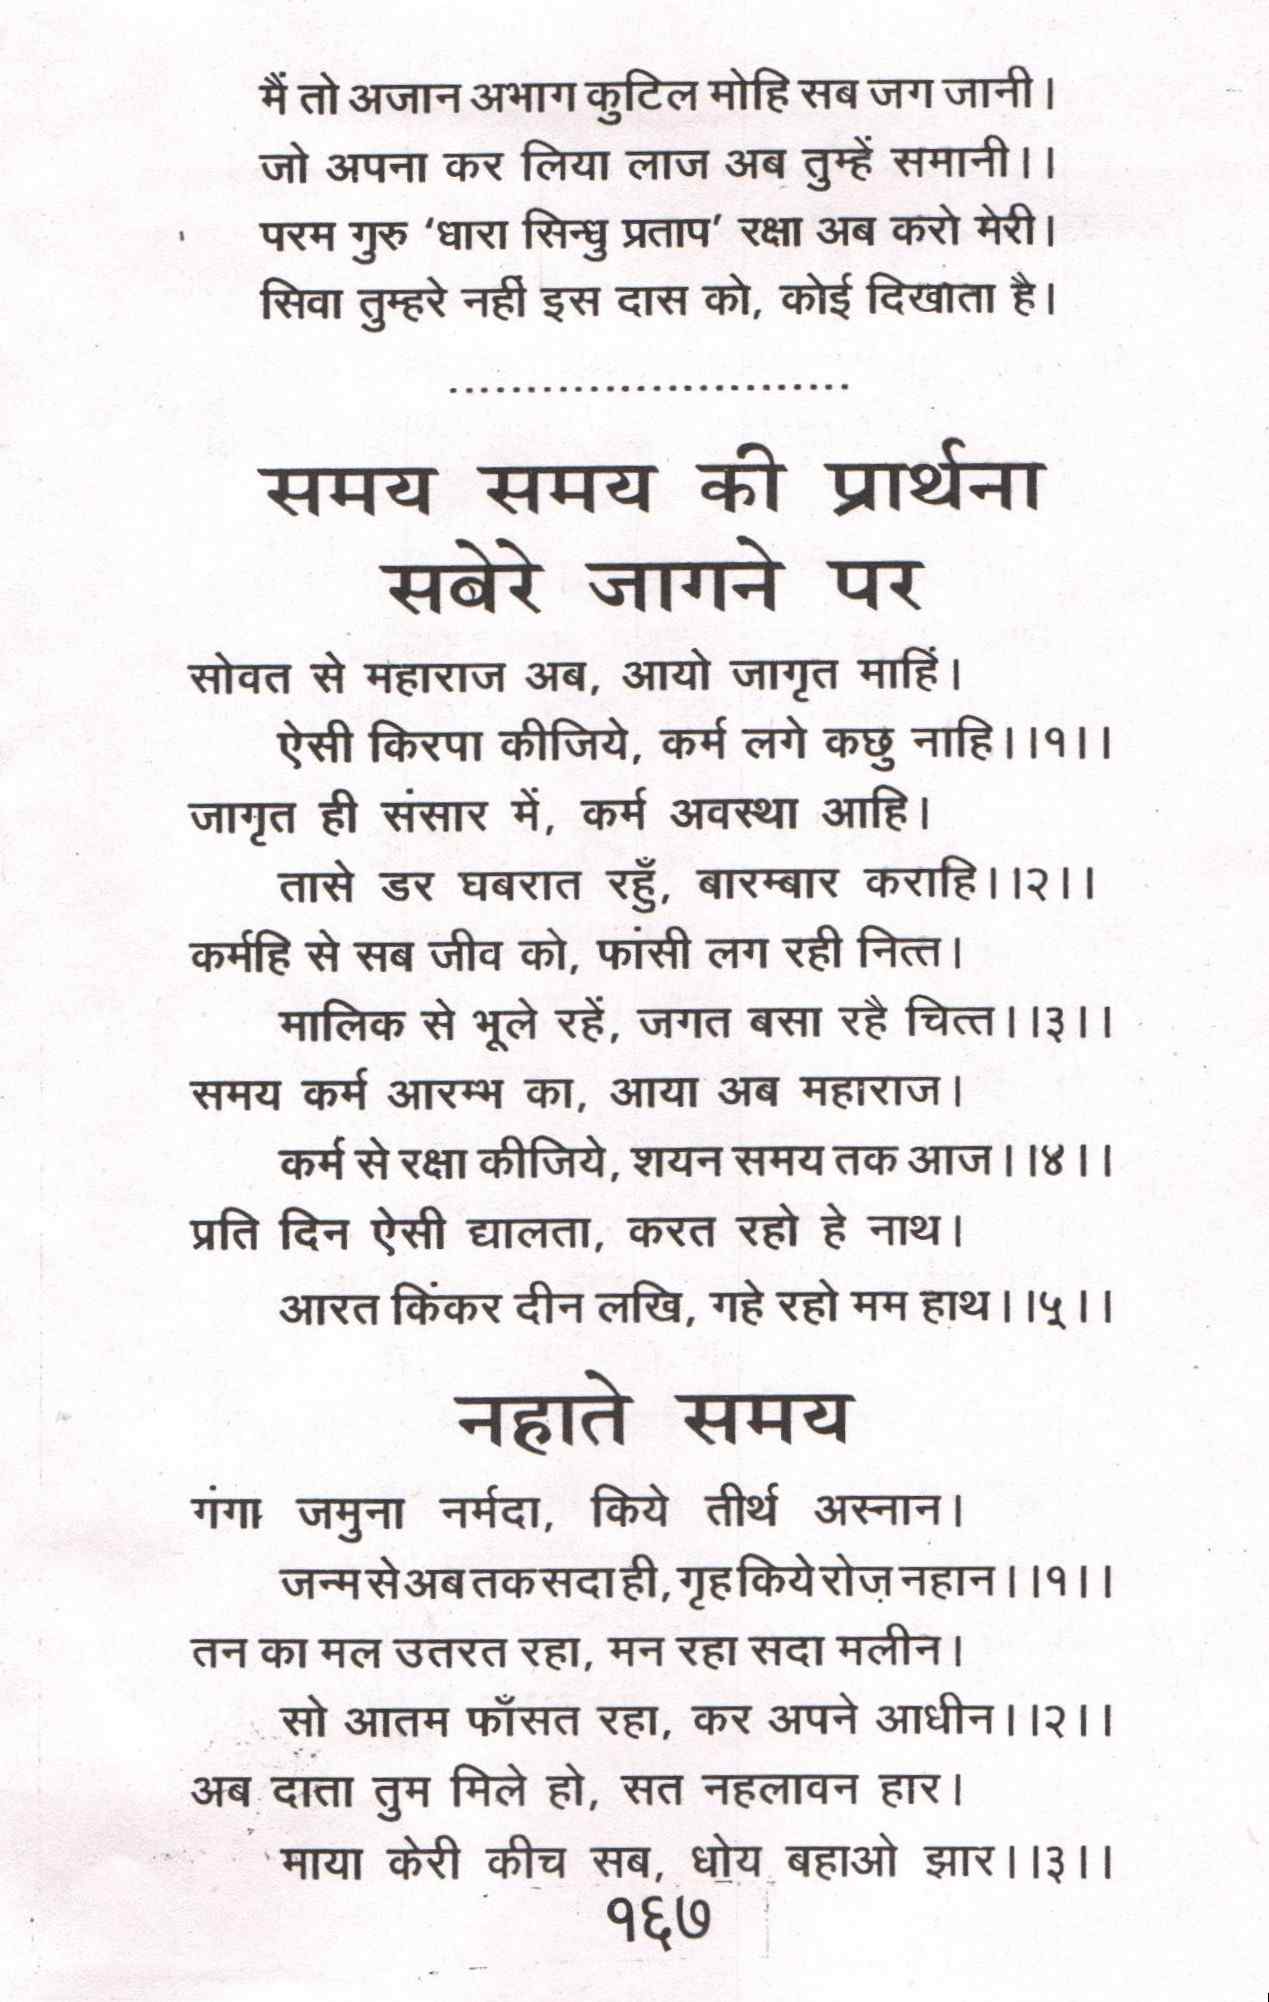 मैं तो अजान अभाग कुटिल मोहि सब जग जानी।
जो अपना कर लिया लाज अब तुम्हें समानी।।
परम गुरु ‘धारा सिन्धु प्रताप’ रक्षा अब करो मेरी।
सिवा तुम्हरे नहीं इस दास को, कोई दिखाता है।
.........................
समय समय की प्रार्थना
सबेरे जागने पर
सोवत से महाराज अब, आयो जागृत माहिं।
ऐसी किरपा कीजिये, कर्म लगे कछु नाहि।।१।।
जागृत ही संसार में, कर्म अवस्था आहि।
तासे डर घबरात रहुँ, बारम्बार कराहि।।२।।
कर्महि से सब जीव को, फांसी लग रही नित्त।
मालिक से भूले रहें, जगत बसा रहै चित्त।।३।।
समय कर्म आरम्भ का, आया अब महाराज।
कर्म से रक्षा कीजिये, शयन समय तक आज।।४।।
प्रति दिन ऐसी द्यालता, करत रहो हे नाथ।
आरत किंकर दीन लखि, गहे रहो मम हाथ।।५।।
नहाते समय
गंगा जमुना नर्मदा, किये तीर्थ अस्नान।
जन्म से अब तक सदा ही, गृह किये रोज़ नहान।।१।।
तन का मल उतरत रहा, मन रहा सदा मलीन।
सो आतम फाँसत रहा, कर अपने आधीन।।२।।
अब दाता तुम मिले हो, सत नहलावन हार।
माया केरी कीच सब, धोय बहाओ झार।।३।।
१६७